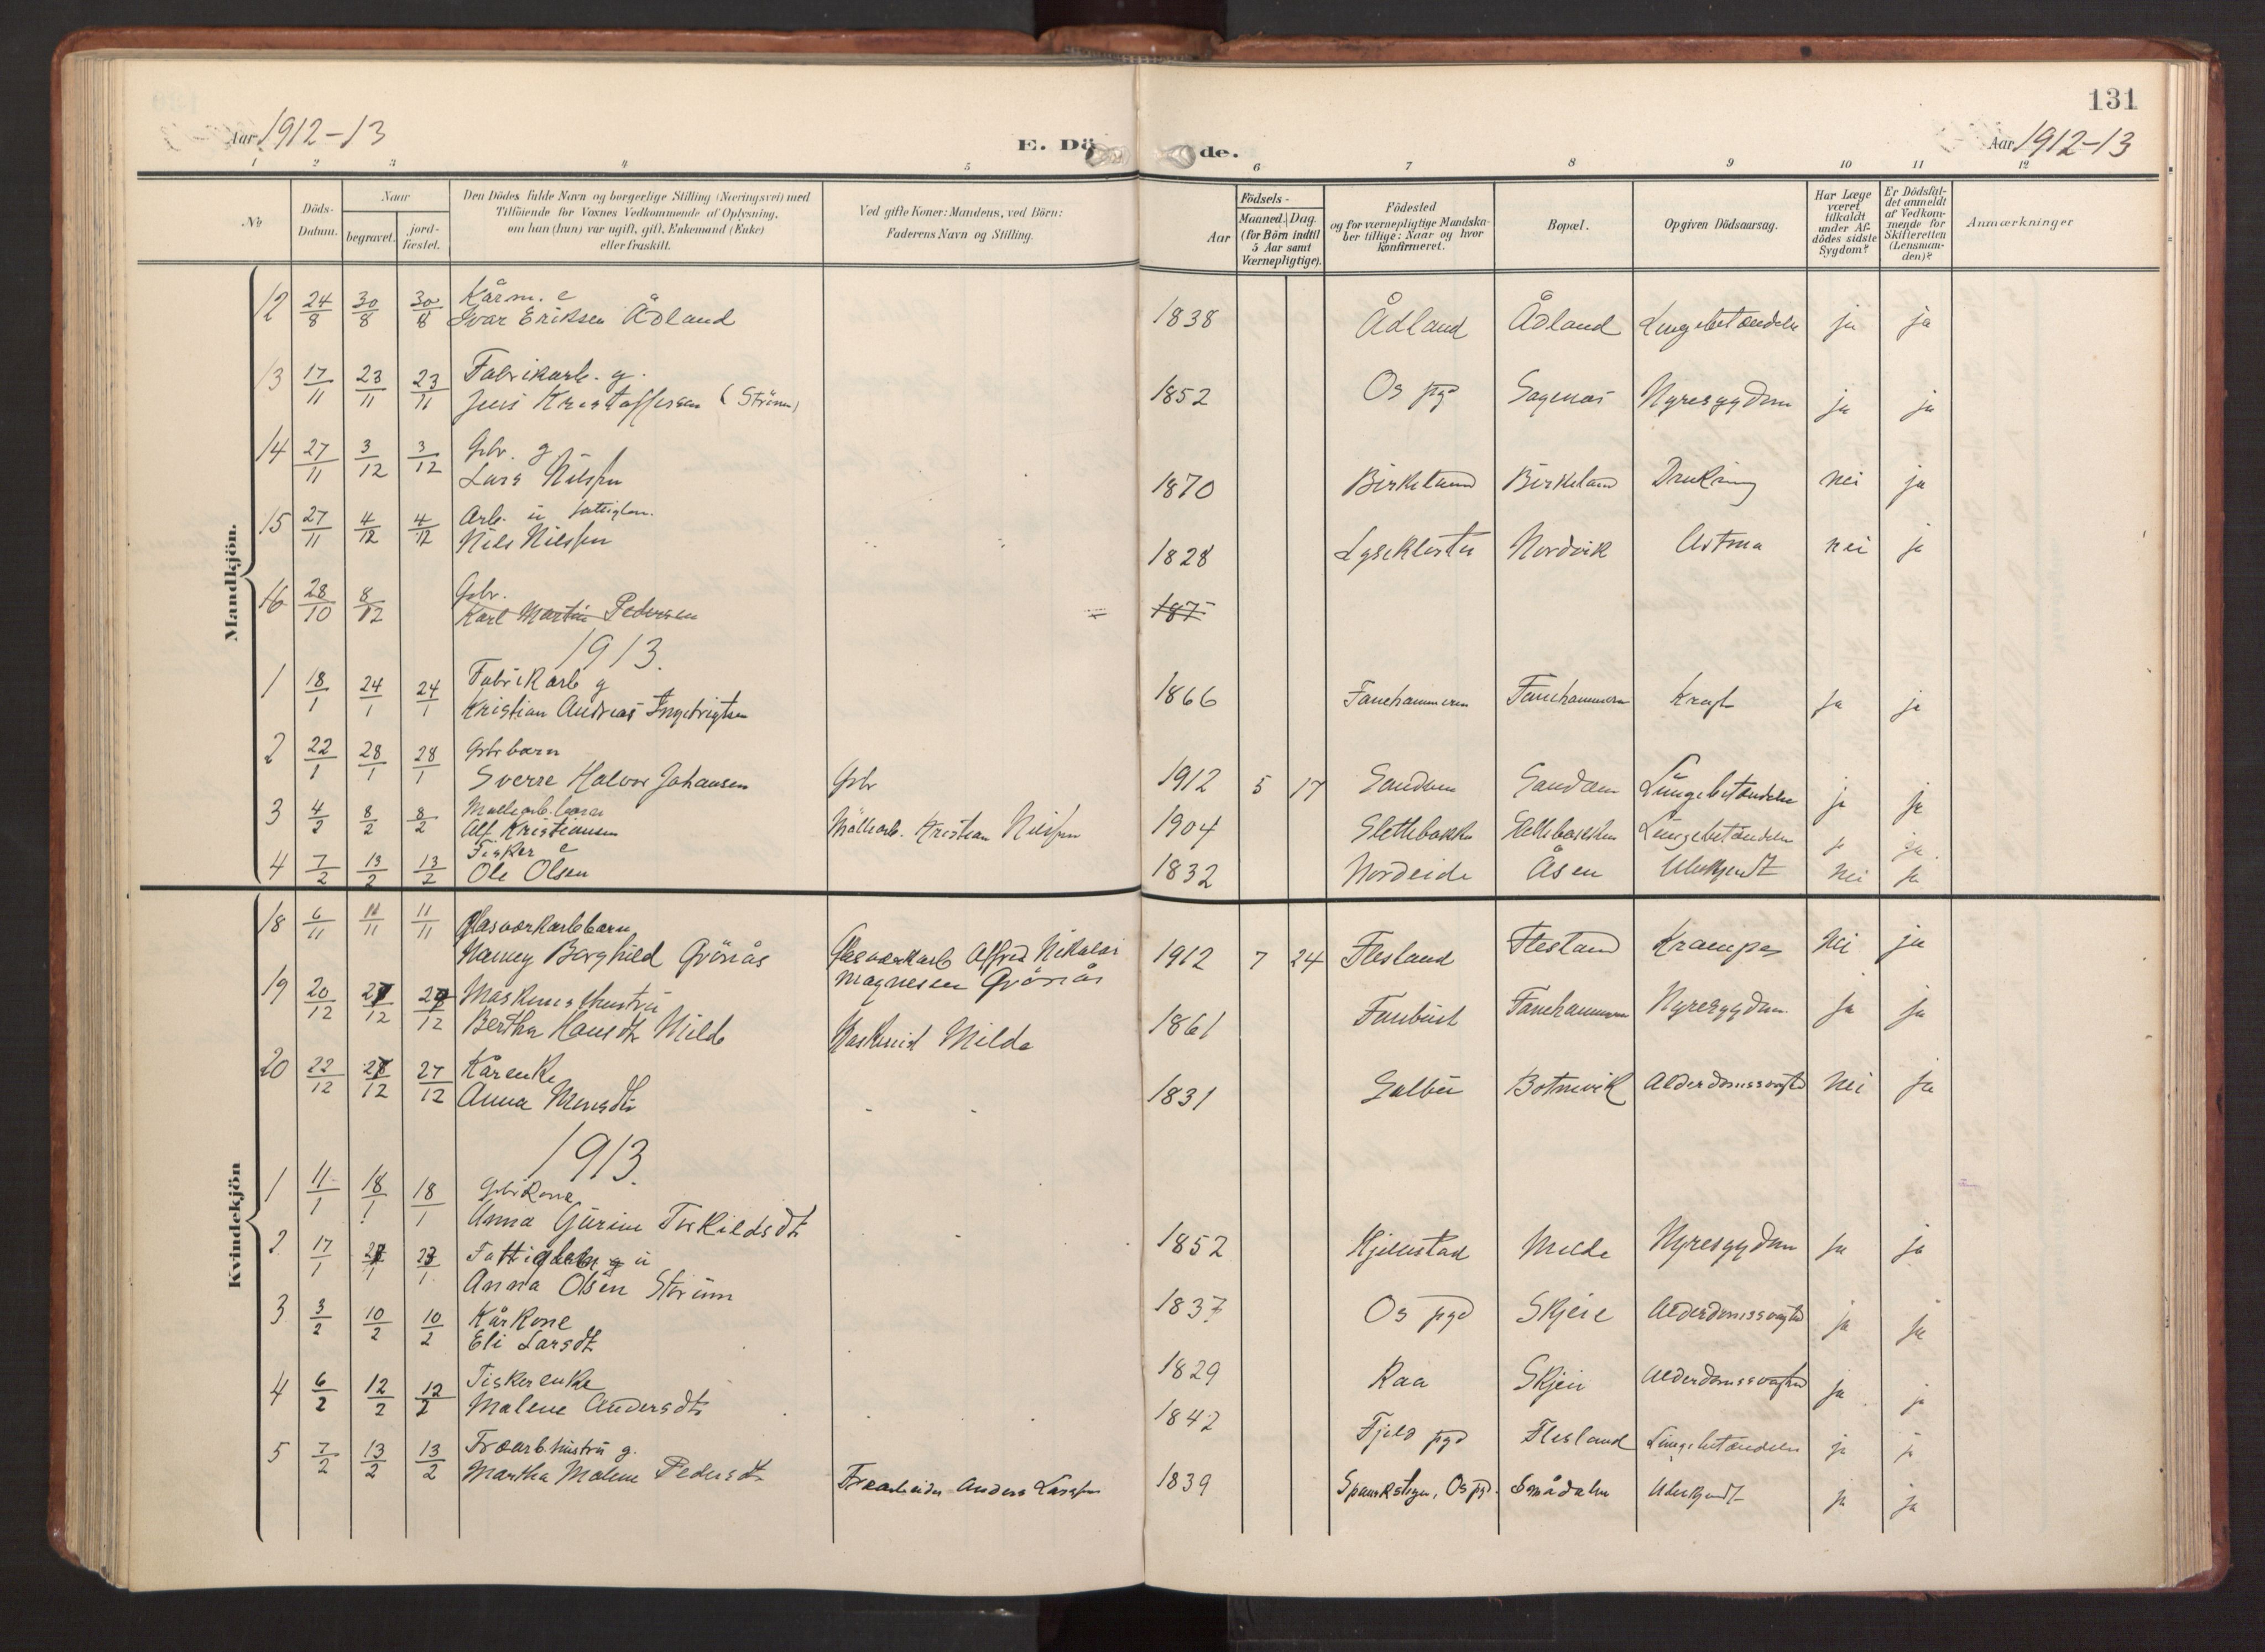 131
Aar 1912-13
E. Dö de.
Aar 1912-13
1 2 3 4 5 6 7 8 9 10 11 12
No
Döds-Datum.
Naar
begravet.
jord-fæstet.
Den Dödes fulde Navn og borgerlige Stilling (Næringsvei) med
Tilföiende for Voxnes Vedkommende af Oplysning,
om han (hun) var ugift, gift, Enkemand (Enke)
eller fraskilt.
Ved gifte Koner: Mandens, ved Börn:
Faderens Navn og Stilling.
Födsels-
Aar
Maaned. Dag.
(for Börn indtil
5 Aar samt
Værnepligtige).
Födested
og for værnepligtige Mandska-
ber tillige: Naar og hvor
konfirmeret.
Bopæl.
Opgiven Dödsaarsag.
Har Læge
været
tilkaldt
under Af-
dödes sidste
Sygdom?
Er Dödsfal-
det anmeldt
af Vedkom-
mende for
Skifteretten
(Lensman-
den)?
Anmærkninger
Mandkjön.
12 24/8 30/8 30/8 Kårm. e
Ivar Eriksen Ådland 1838 Ådland Ådland Lungebetændelse ja ja
13 17/11 23/11 23/11 Fabrikarb. g.
Jens Kristoffersen (Ström) 1852 Os pgd Sagenæs Nyresygdom ja ja
14 27/11 3/12 3/12 Gbr. g
Lars Nilssen 1870 Birkeland Birkeland Drukning nei ja
15 27/11 4/12 4/12 Arb. u fattiglem.
Nils Nilssen 1828 Lysekloster Nordvik Astma nei ja
16 28/10 8/12 Gbr.
Karl Martin Pedersen 187
1913.
1 18/1 24/1 24/1 Fabrikarb g
Kristian Andreas Ingebrigtsen 1866 Fanehammeren Fanehammeren Kræft ja ja
2 22/1 28/1 28/1 Gbrbarn
Sverre Halvor Johansen Gbr 1912 5 17 Sandven Sandven Lungebetændelse ja ja
3 4/2 8/2 8/2 Möllearb. barn
Alf Kristiansen Möllearb. Kristian Nilssen 1904 Slettebakken Slettebakken Lungebetændelse ja ja
4 7/2 13/2 13/2 Fisker e
Ole Olsen 1832 Nordeide Åsen Ubekjendt nei ja
Kvindekjön
18 6/11 11/11 11/11 Glasværkarbbarn
Nancy Borghild Grönås Glasværkarb Alfred Nikolai
Magnesen Grönås 1912 7 24 Flesland Flesland Krampe nei ja
19 20/12 27/12 27/12 Maskinisthustru
Bertha Hansdtr Milde Maskinist Milde 1861 Fanehammeren Nyresygdom ja ja
20 22/12 27/12 27/12 Kårenke
Anna Monsdtr 1831 Botnevik Alderdomssvaghed nei ja
1913.
1 11/1 18/1 18/1 Gbrkone
Anna Gurine Torkildsdtr 1852 Kjillestad Milde Nyresygdom ja ja
2 17/1 23/1 23/1 Fattiglem g u
Anna Olsen Storum 1837 Os pgd Skjeie Alderdomssvaghed ja ja
3 3/2 10/2 10/2 Kårkone
Eli Larsdtr 1829 Raa Skjeie Alderdomssvaghed ja ja
4 6/2 12/2 12/2 Fiskerenke
Malene Andersdtr 1842 Fjeld pgd Flesland Lungebetændelse ja ja
5 7/2 13/2 13/2 Træarbhustru g.
Martha Malene Pedersdtr Træarbeider Anders Larssen 1839 Os pgd. Smådalen Ubekjendt ja ja